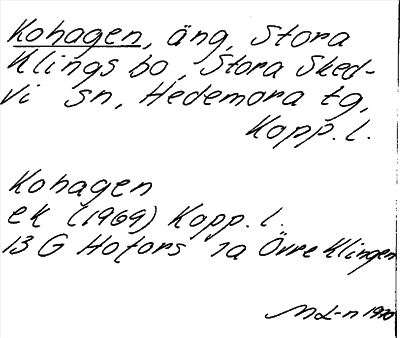 Kohagen, äng, Stora
Klingsbo, Stora Sked-
vi sn, Hedemora tg,
Kopp. l.
Kohagen
ek (1969) Kopp. l.
13 G Hofors 1a Övre Klingen
ML-n 1970